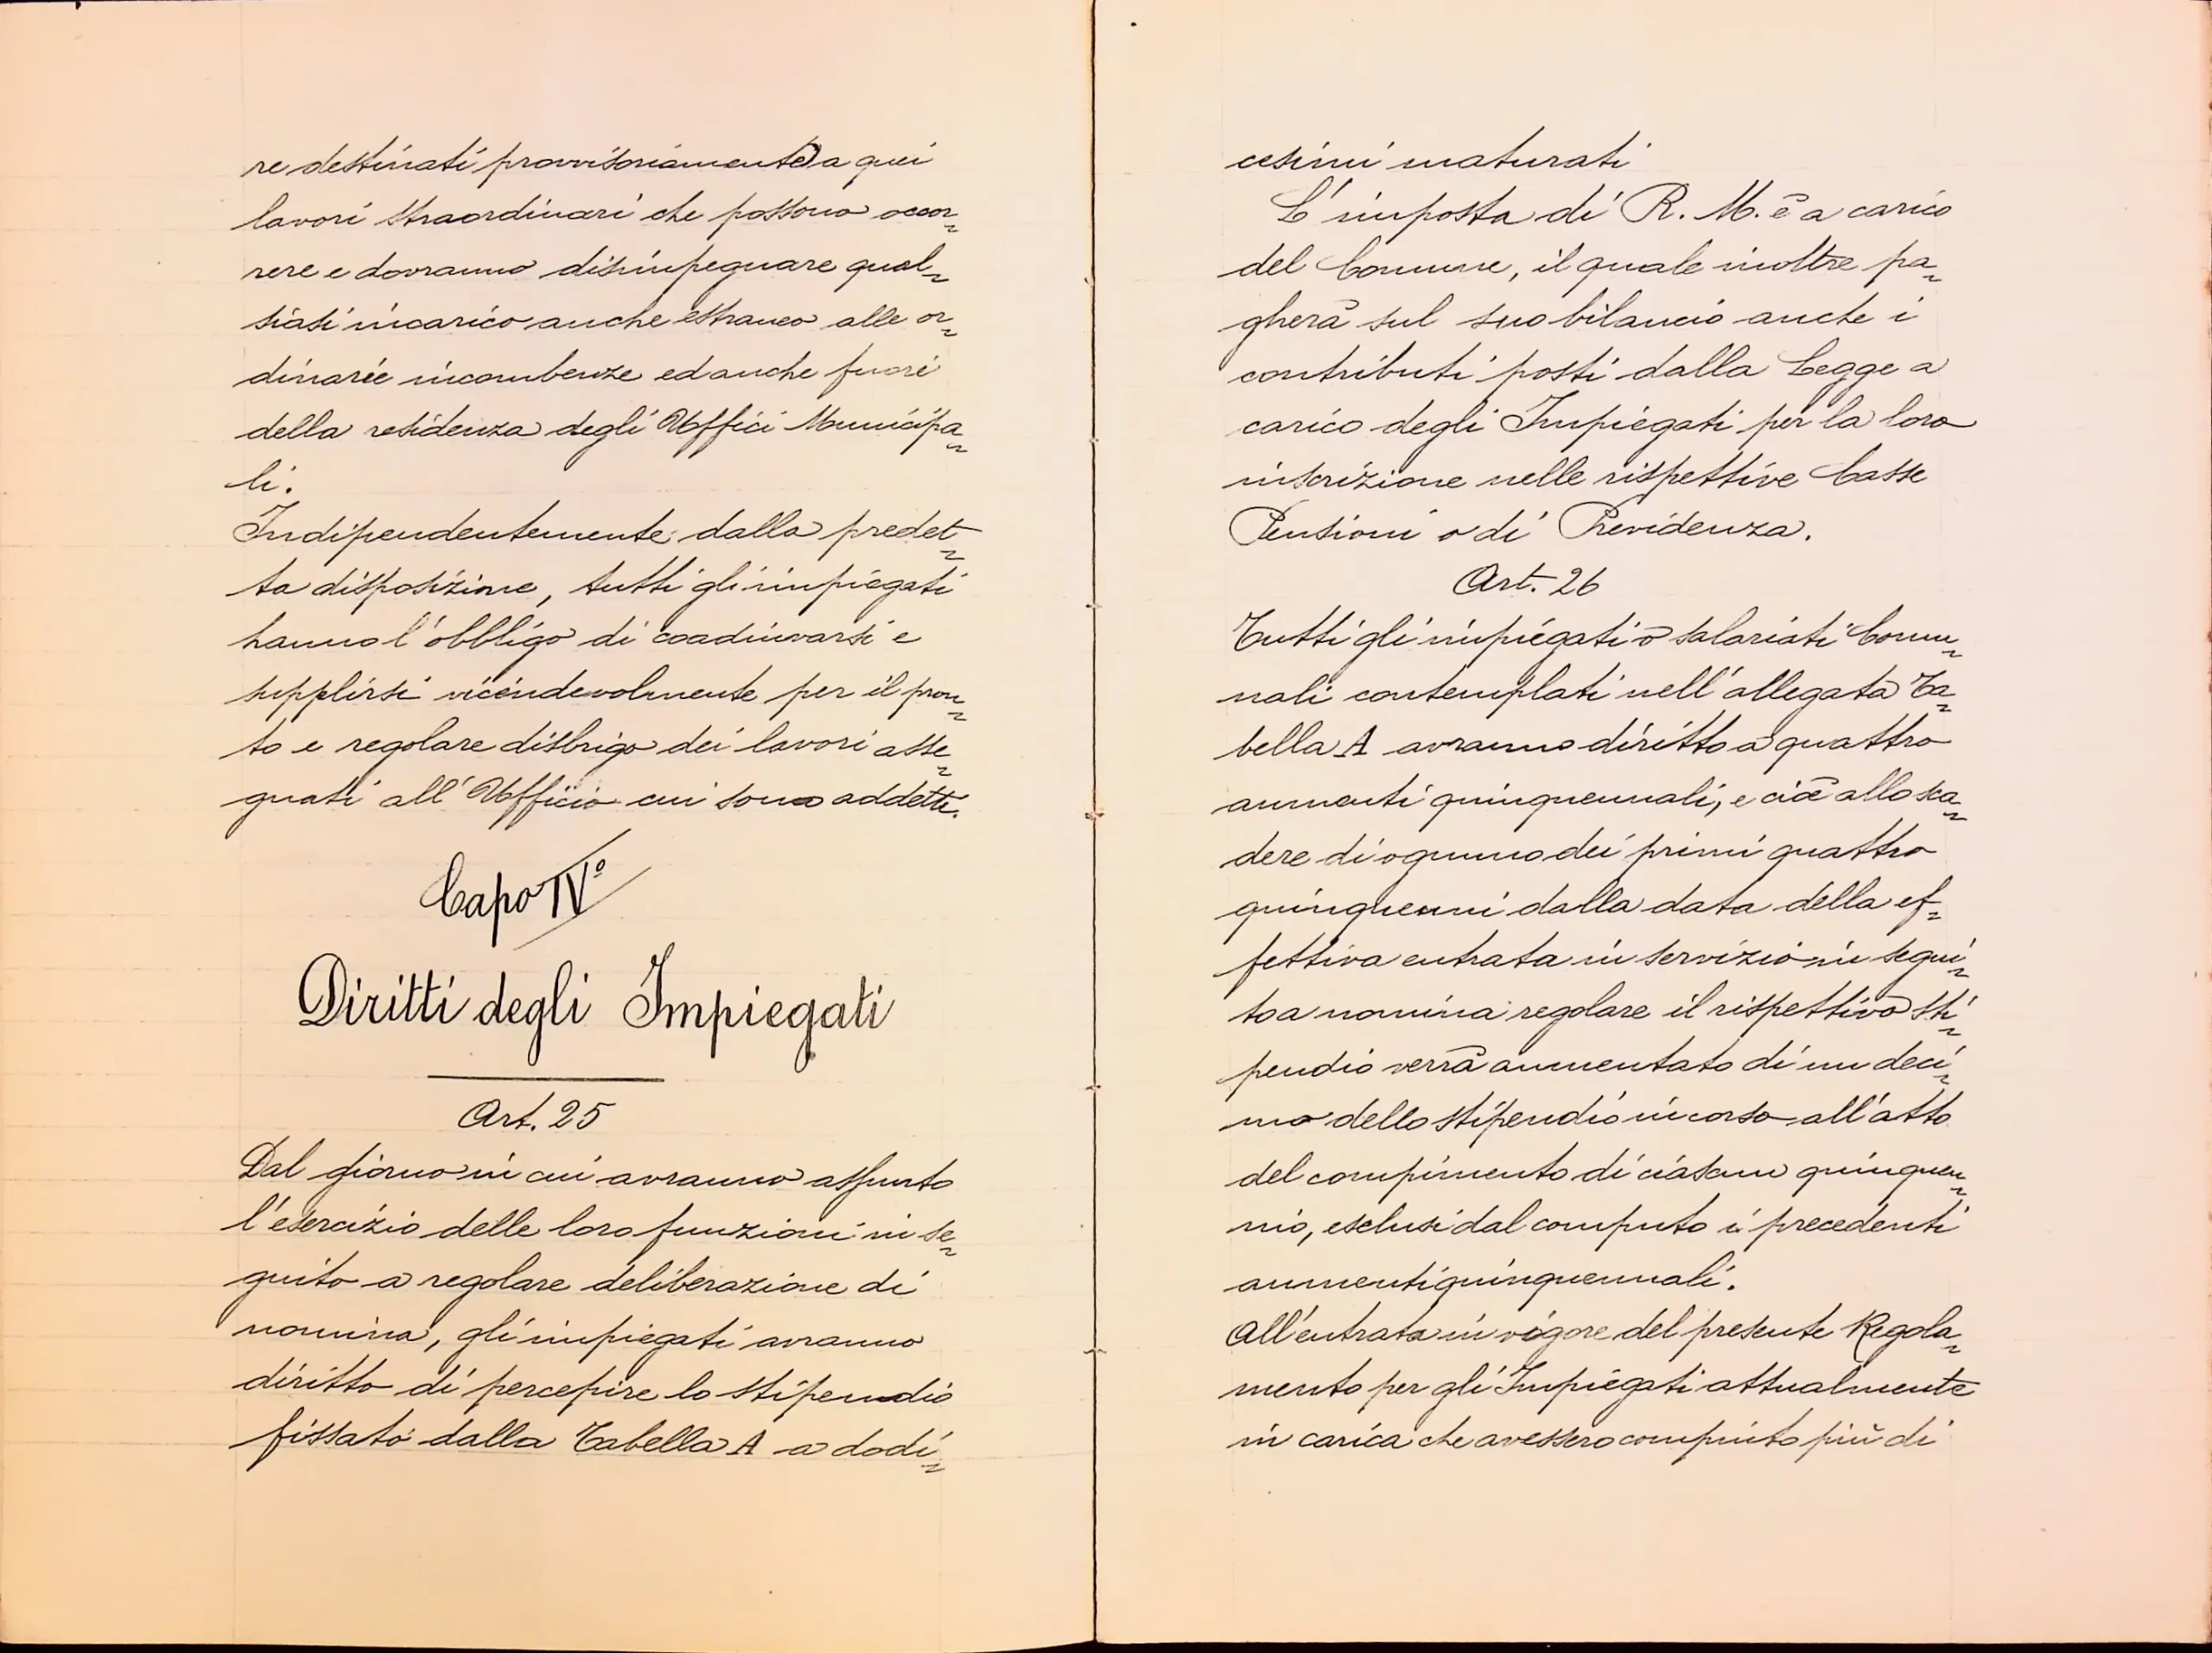 re destinati provvisoriamente a quei
lavori straordinari che possono occor=
rere e dovranno disimpegnare qual=
siasi incarico anche estraneo alle or=
dinarie incombenze ed anche fuori
della residenza degli Uffici Municipa=
li.
Indipendentemente dalla predet=
ta disposizione, tutti gli impiegati
hanno l'obbligo di coadiuvarsi e
supplirsi vicendevolmente per il pron=
to e regolare disbrigo dei lavori asse=
gnati all'Ufficio cui sono addetti.
Capo IV°
Diritti degli Impiegati
Art. 25
Dal giorno in cui avranno assunto
l'esercizio delle loro funzioni in se=
guito a regolare deliberazione di
nomina, gli impiegati avranno
diritto di percepire lo stipendio
fissato dalla Tabella A a dodi=
cesimi maturati
L'imposta di R. M. è a carico
del Comune, il quale inoltre pa=
gherà sul suo bilancio anche i
contributi posti dalla Legge a
carico degli Impiegati per la loro
inscrizione nelle rispettive Casse
Pensioni o di Previdenza.
Art. 26
Tutti gli impiegati o salariati Comu=
nali contemplati nell'allegata Ta=
bella A avranno diritto a quattro
aumenti quinquennali, e cioè allo sca=
dere di ognuno dei primi quattro
quinquenni dalla data della ef=
fettiva entrata in servizio in segui=
to a nomina regolare il rispettivo sti=
pendio verrà aumentato di un deci=
mo dello stipendio in corso all'atto
del compimento di ciascun quinquen=
nio, esclusi dal computo i precedenti
aumenti quinquennali.
All'entrata in vigore del presente Regola=
mento per gli Impiegati attualmente
in carica che avessero compiuto più di